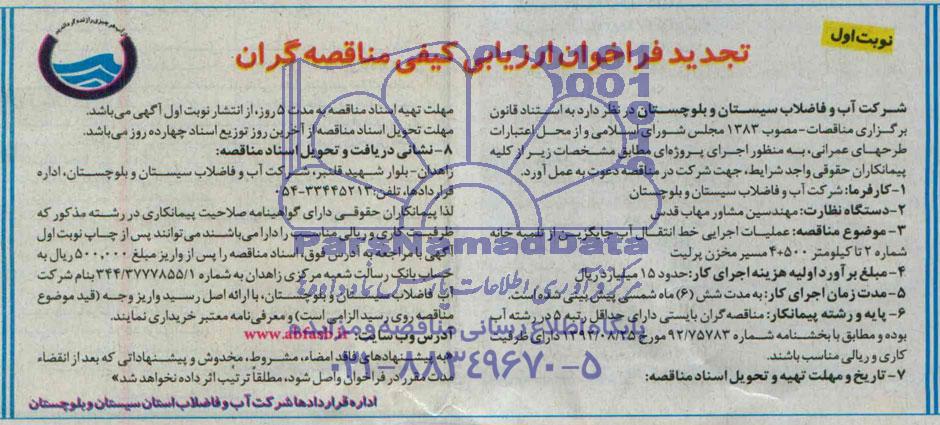 نوبت اول
تجدید فراخوان ارزیابی کیفی مناقصه گران
شرکت آب و فاضلاب سیستان و بلوچستان در نظر دارد به استناد قانون
برگزاری مناقصات- مصوب ۱۳۸۳ مجلس شورای اسلامی و از محل اعتبارات
طرحهای عمرانی، به منظور اجرای پروژه‌ای مطابق مشخصات زیر از کلیه
پیمانکاران حقوقی واجد شرایط، جهت شرکت در مناقصه دعوت به عمل آورد.
۱-کارفرما: شرکت آب و فاضلاب سیستان و بلوچستان
۲-دستگاه نظارت: مهندسین مشاور مهاب قدس
۳- موضوع مناقصه: عملیات اجرایی خط انتقال آب جایگزین از تلمبه خانه
شماره ۲ تا کیلومتر ۵۰۰+۴ مسیر مخزن پرلیت
۴-مبلغ برآورد اولیه هزینه اجرای کار: حدود ۱۵ میلیارد ریال
۵-مدت زمان اجرای کار: به مدت شش (۶) ماه شمسی پیش بینی شده است.
۶- پایه و رشته پیمانکار: مناقصه گران بایستی دارای حداقل رتبه ۵ در رشته آب
بوده و مطابق با بخشنامه شماره ۹۲/۷۵۷۸۳ مورخ ۱۳۹۲/۰۸/۲۵ دارای ظرفیت
کاری و ریالی مناسب باشند.
۷- تاریخ و مهلت تهیه و تحویل اسناد مناقصه:
مهلت تهیه اسناد مناقصه به مدت ۵ روز، از انتشار نوبت اول آگهی می‌باشد.
مهلت تحویل اسناد مناقصه از آخرین روز توزیع اسناد چهارده روز می‌باشد.
۸- نشانی دریافت و تحویل اسناد مناقصه:
زاهدان- بلوار شهید قلنبر، شرکت آب و فاضلاب سیستان و بلوچستان، اداره
قراردادها، تلفن: ۳۳۴۴۵۲۱۳-۰۵۴
لذا پیمانکاران حقوقی دارای گواهینامه صلاحیت پیمانکاری در رشته مذکور که
ظرفیت کاری و ریالی مناسب را دارا می‌باشند می‌توانند پس از چاپ نوبت اول
آگهی با مراجعه به آدرس فوق، اسناد مناقصه را پس از واریز مبلغ ۵۰۰,۰۰۰ ریال به
حساب بانک رسالت شعبه مرکزی زاهدان به شماره ۳۴۴/۳۷۷۷۸۵۵/۱ بنام شرکت
آب فاضلاب سیستان و بلوچستان، با ارائه اصل رسید واریز وجه (قید موضوع
مناقصه روی رسید الزامی است) و معرفی‌نامه معتبر خریداری نمایند.
آدرس وب سایت: www.abfasb.ir
«به پیشنهادهای فاقد امضاء، مشروط، مخدوش و پیشنهاداتی که بعد از انقضاء
مدت مقرر در فراخوان واصل شود، مطلقاً ترتیب اثر داده نخواهد شد»
اداره قراردادها شرکت آب و فاضلاب استان سیستان و بلوچستان
ParsNamadData
مرکز فرآوری اطلاعات پارس نماد داده ها
پایگاه اطلاع رسانی مناقصه و مزایده
۰۲۱-۸۸۳۴۹۶۷۰-۵